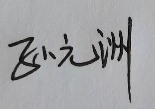 孙元洲